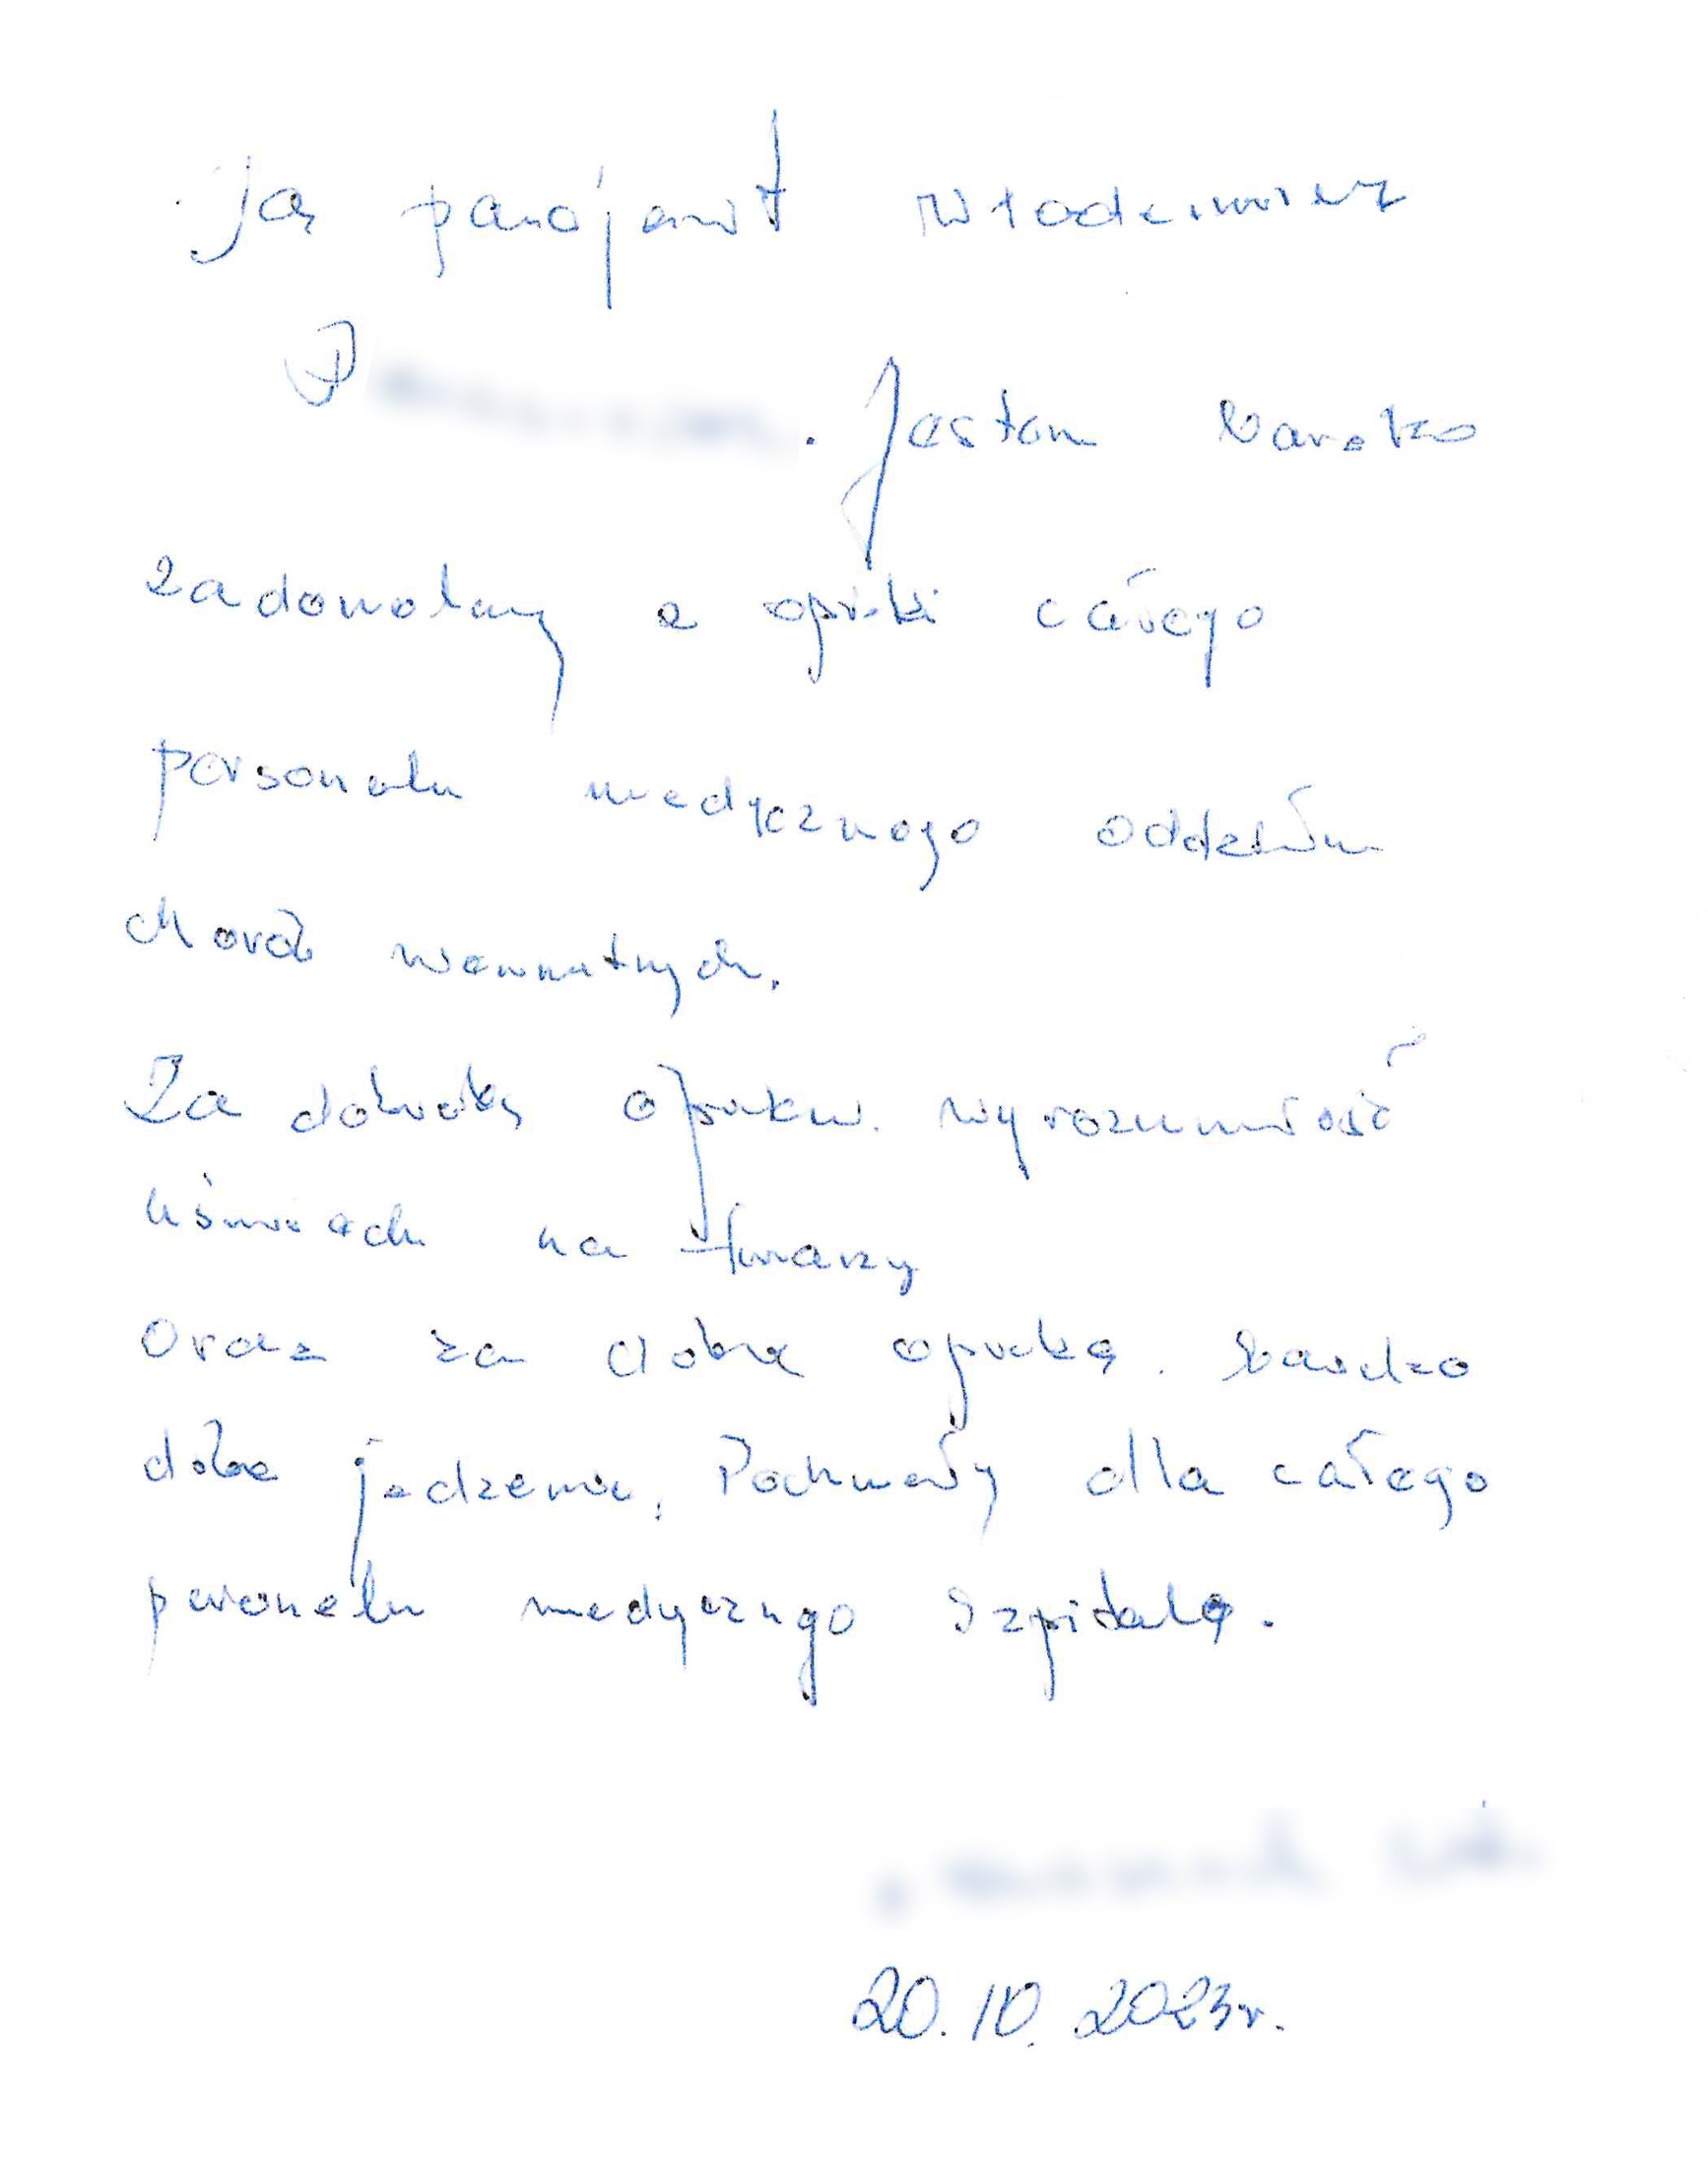 Ja pacjent Włodzimierz
P
. Jestem bardzo
zadowolny z opieki całego
personelu medycznego oddziału
chorób wewnętrznych.
Za dobroć, wyrozumiałość
uśmiech na twarzy
Oraz za dobrą opiekę. bardzo
dobre jedzenie. Pochwały dla całego
personelu medycznego szpitala.
20.10.2023r.